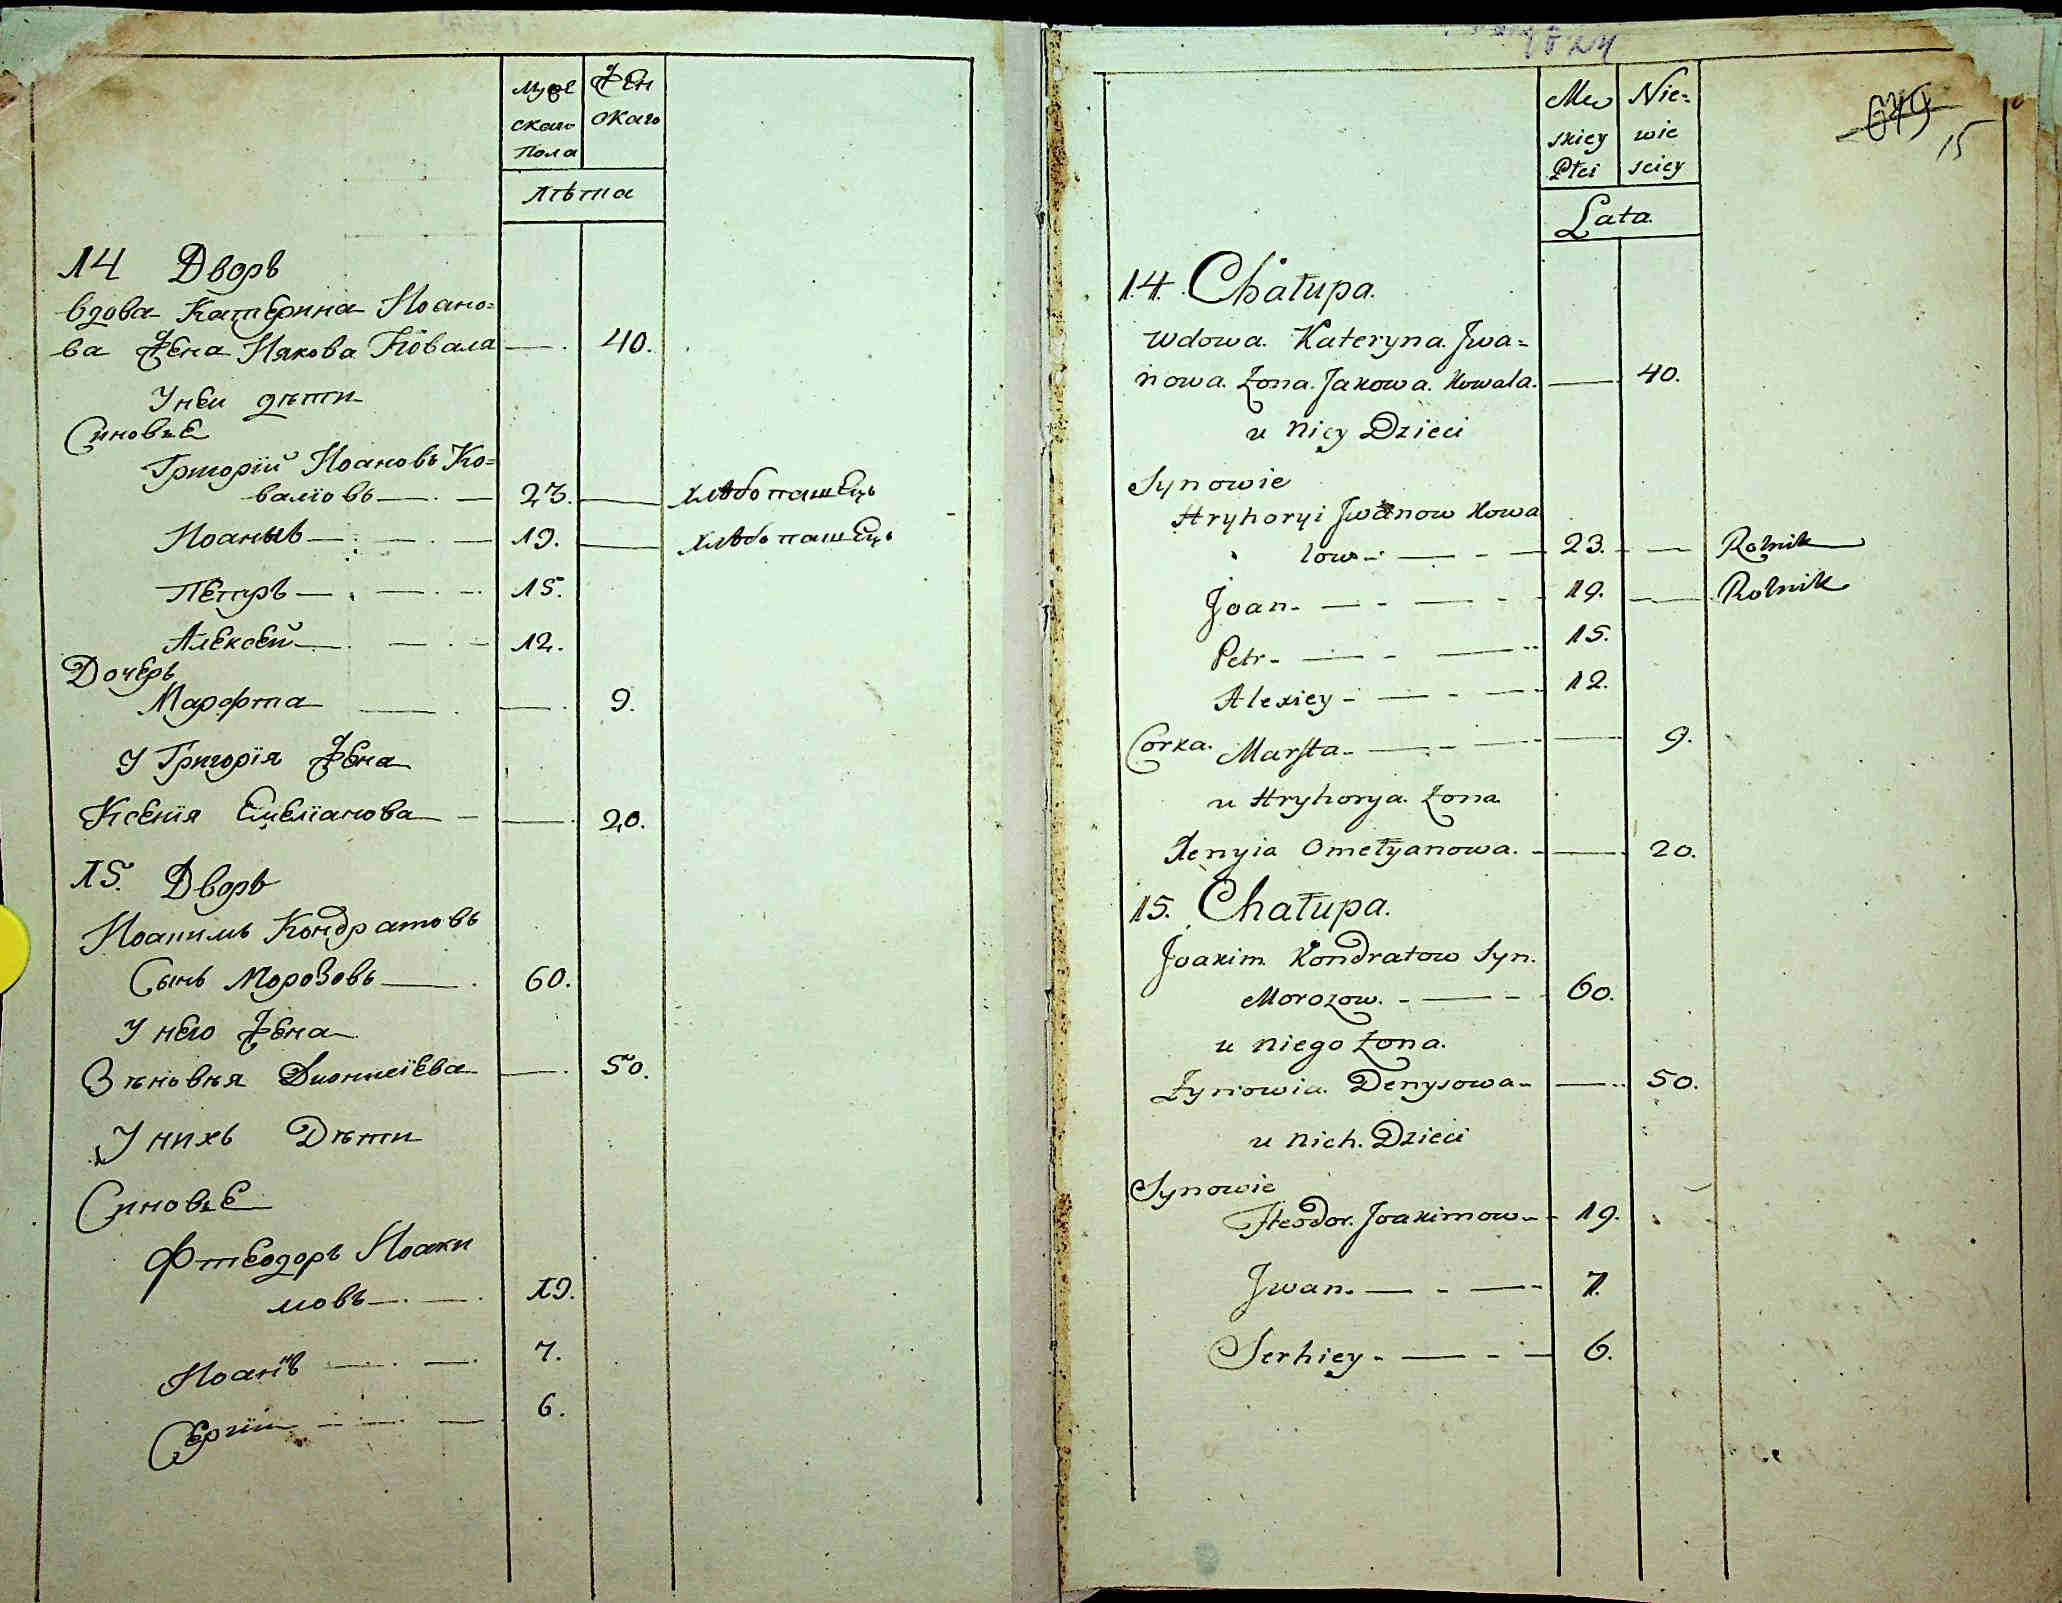 Муже Жен
ского ского
Пола
Лѣта
14 Дворъ
вдова Катерина Иоано=
ва Жена Иякова Ковала — 40.
У неи дѣти
Синовѣе
Григорій Иоановъ Ко=
валіовъ — 23. — хлѣбопашецъ
Иоаннъ — 19. — хлѣбопашецъ
Петръ — 15.
Алексей — 12.
Дочеръ
Марфта — 9.
У Григорія Жена
Ксенія Емеліанова — 20.
15. Дворъ
Иоакимъ Кондратовъ
Сынъ Морозовъ — 60.
У него Жена
Зѣновѣя Дионисіева — 50.
У нихъ Дѣти
Синовѣе
Фтеодоръ Иоаки
мовъ — 19.
Иоаннъ — 7.
Сергіи — 6.
649
15
Mę Nie=
skiey wie
Płci sciey
Lata
14. Chałupa.
Wdowa. Kateryna. Jwa=
nowa. Żona. Jakowa. Kowala. — 40.
u Niey Dzieci
Synowie
Hryhoryi Jwanow Kowa
low — 23. — Rolnik
Joan — 19. — Rolnik
Petr — 15.
Alexiey — 12.
Corka. Marfta — 9.
u Hryhorya. Żona
Xenyia Omełyanowa. — 20.
15. Chałupa.
Joakim Kondratow Syn.
Morozow. — 60.
u Niego Żona.
Zynowia. Denysowa — 50.
u Nich. Dzieci
Synowie
Fteodor. Joakimow — 19.
Jwan. — 7.
Serhiey — 6.